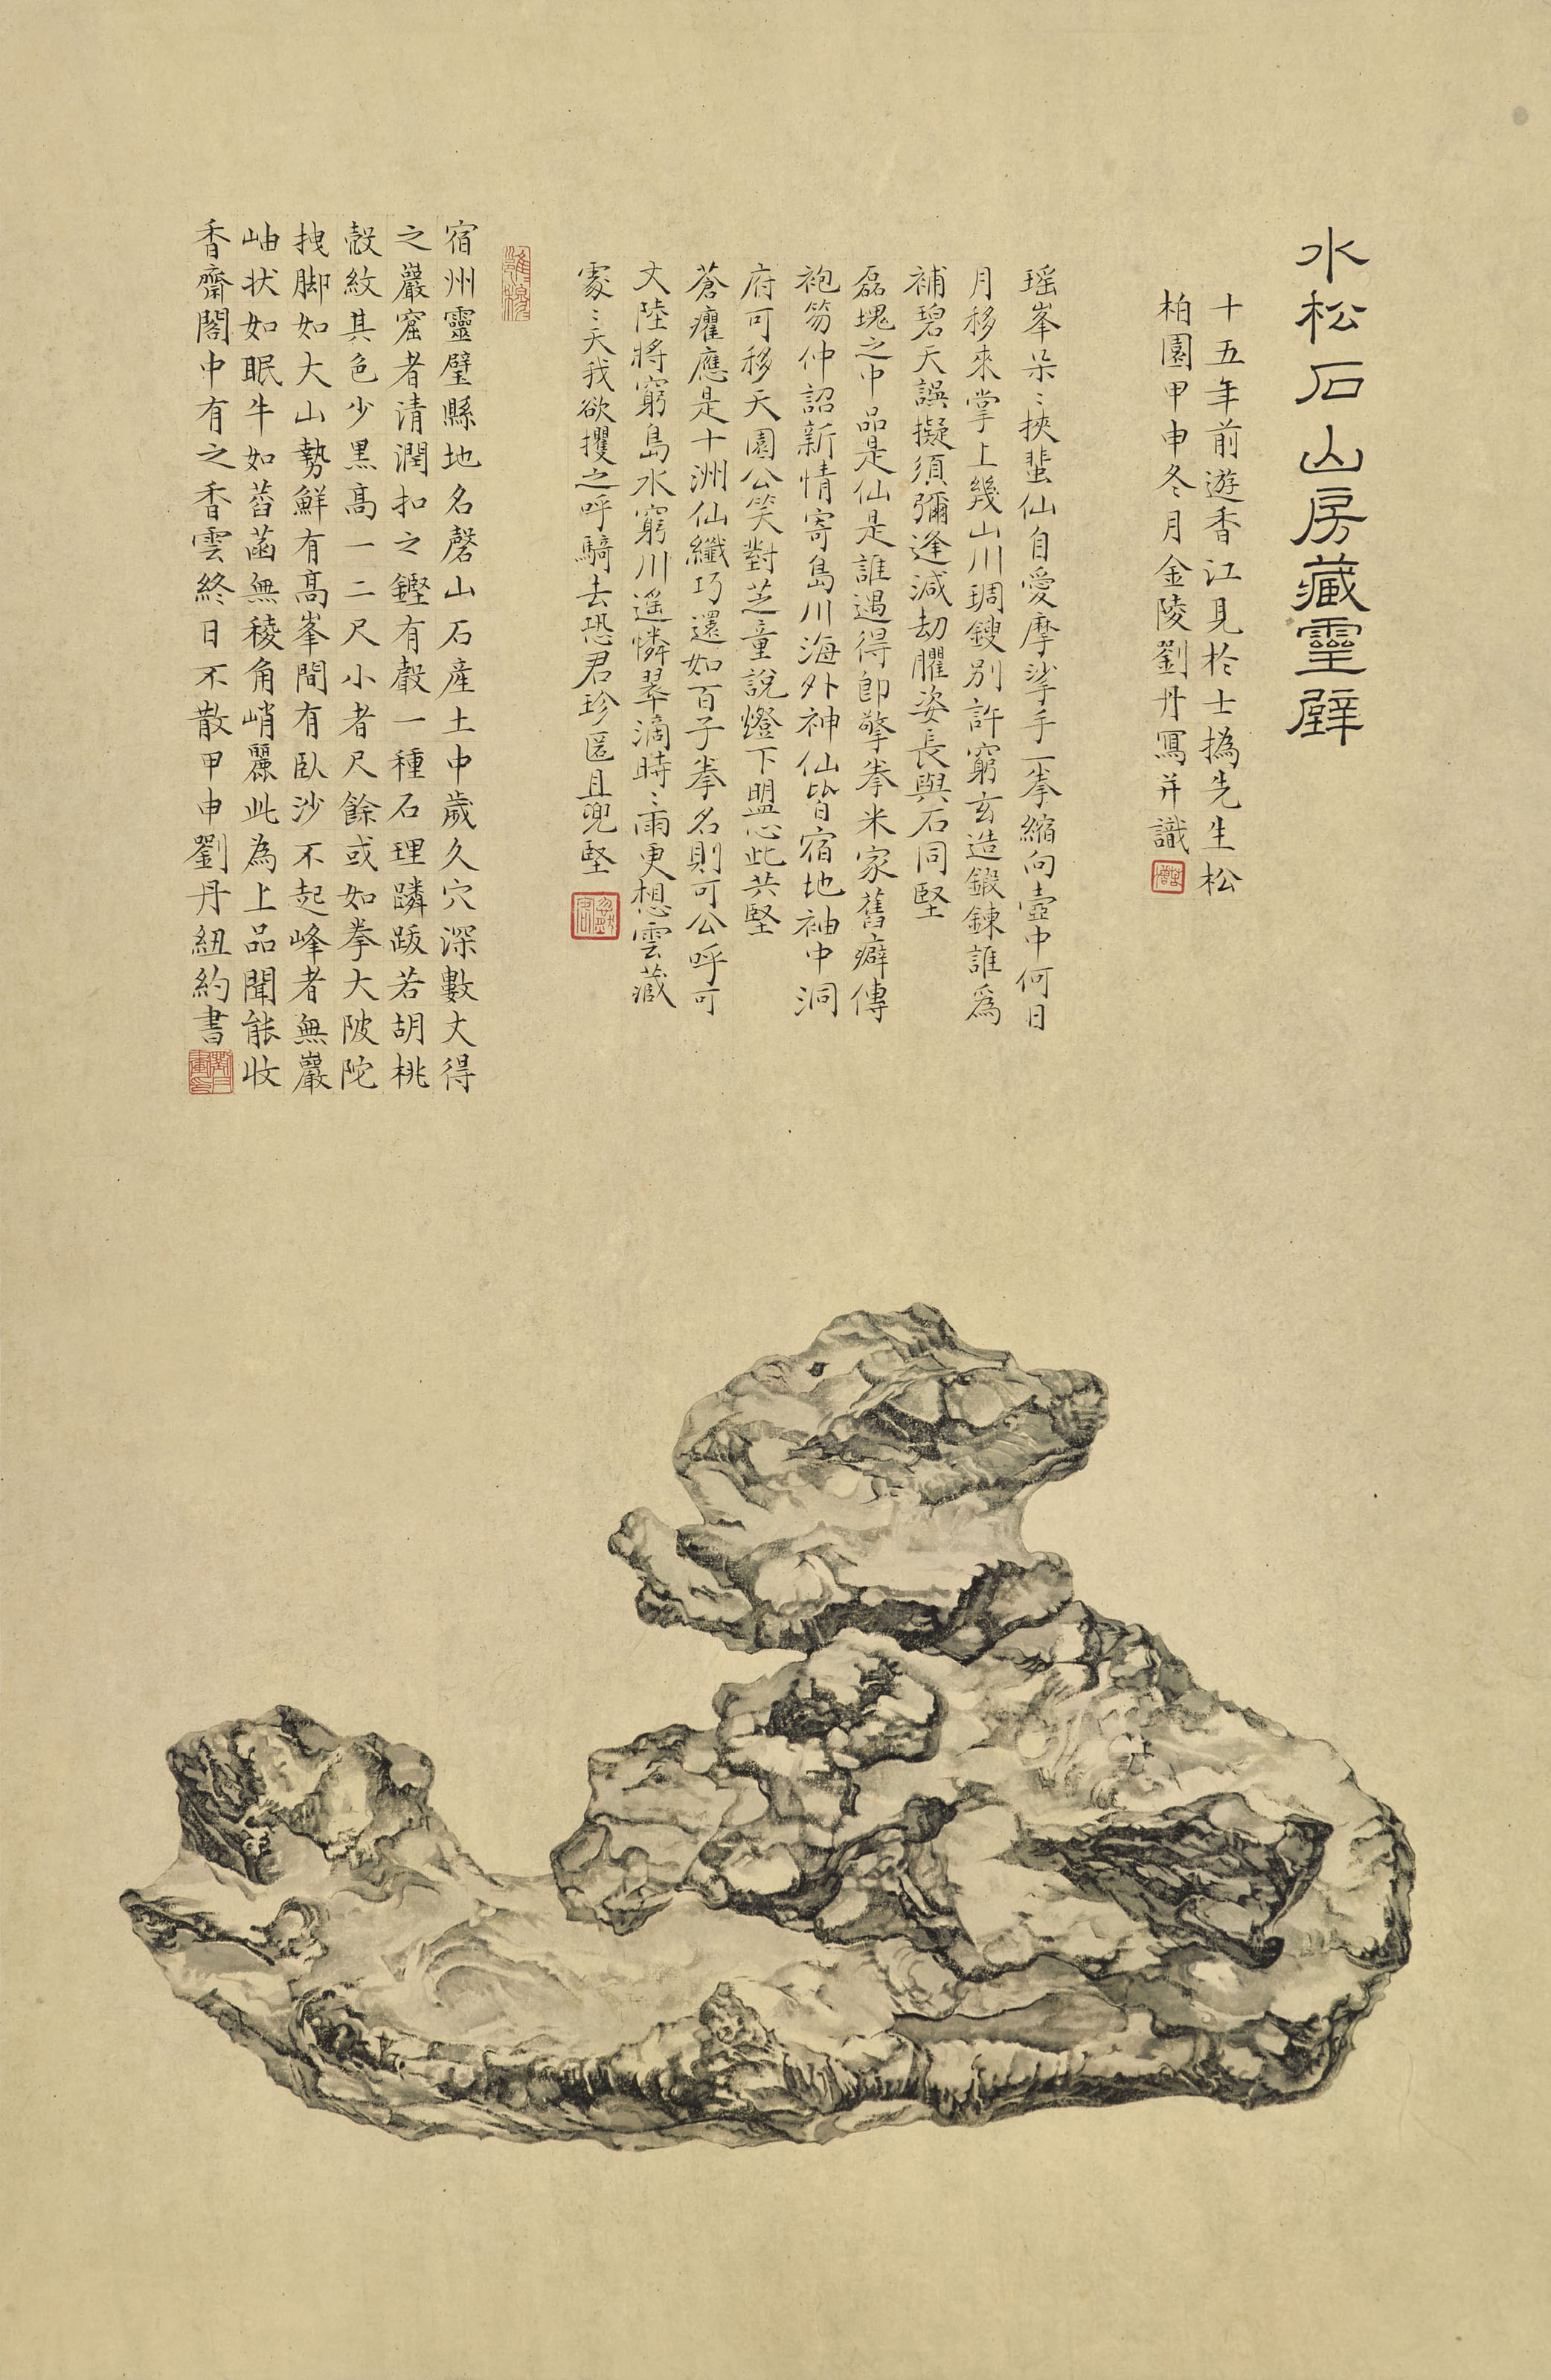 水松石山房藏靈璧
十五年前遊香江見於士撝先生松
柏園甲申冬月金陵劉丹寫并識
瑶峯朵〻挾蜚仙自愛摩挲手一拳縮向壺中何日
月移來掌上幾山川琱鎪別許窮玄造鍛鍊誰爲
補碧天誤擬須彌逢減劫臞姿長與石同堅
磊塊之中品是仙是誰遇得卽擎拳米家舊癖傳
袍笏仲詔新情寄島川海外神仙皆宿地袖中洞
府可移天園公笑對芝童說燈下盟心此共堅
蒼癯應是十洲仙纖巧還如百子拳名則可公呼可
丈陸將窮島水窮川遥憐翠滴時〻雨更想雲藏
處〻天我欲攫之呼騎去恐君珍匿且兜堅
宿州靈璧縣地名磬山石產土中歲久穴深數丈得
之巖窟者清潤扣之鏗有聲一種石理蹸跋若胡桃
殼紋其色少黑高一二尺小者尺餘或如拳大陂陀
拽脚如大山勢鮮有高峯間有臥沙不起峰者無巖
岫状如眠牛如菡萏無稜角峭麗此為上品聞能收
香齋閣中有之香雲終日不散甲申劉丹紐約書